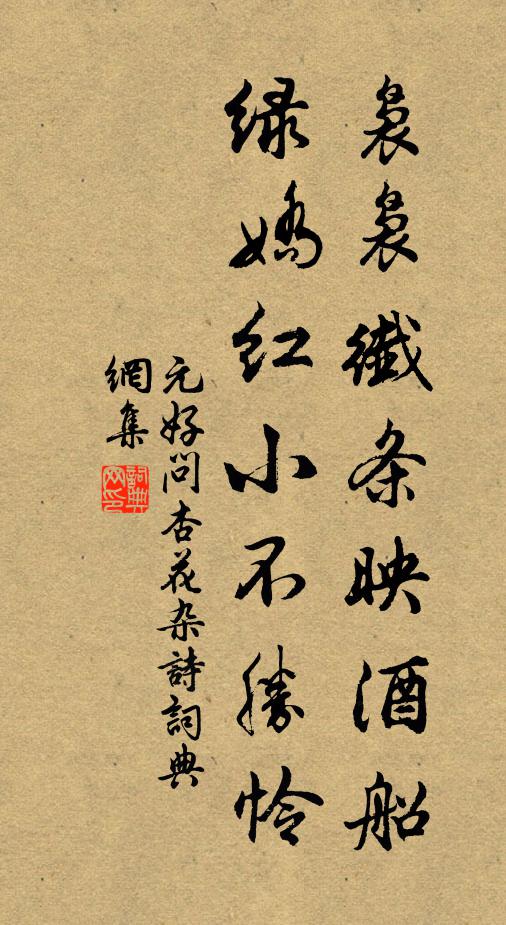 袅袅纖条映酒船
绿嬌红小不勝怜
元好问杏花杂詩詞典
網集
詞典网印